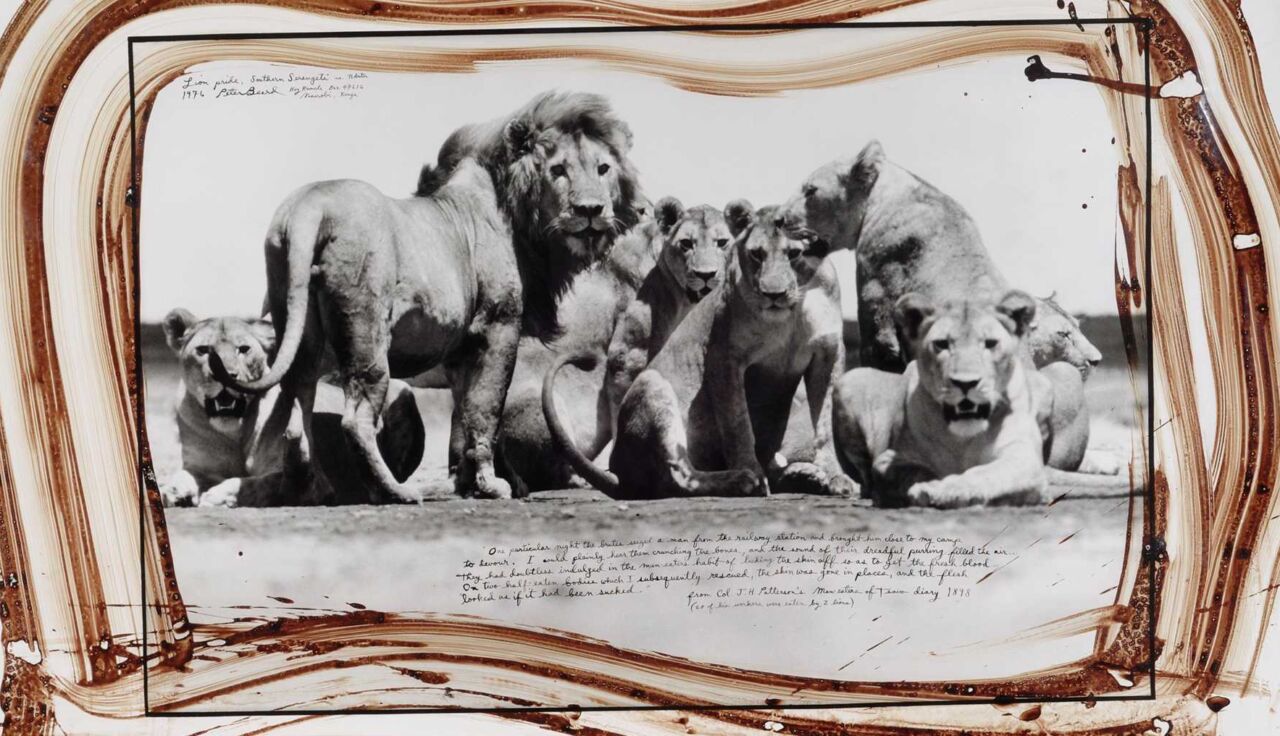 Lion pride, Southern Serengeti nr. Ndutu
1976 Peter Beard Hog Ranch Box
Nairobi, Kenya
"One particular night the brutes seized a man from the railway station and brought him close to my camp
to devour. I could plainly hear them crunching the bones, and the sound of their dreadful purring filled the air...
They had doubtless indulged in the man eaters habit of licking the skin off so as to get the fresh blood
On two half-eaten bodies which I subsequently rescued, the skin was gone in places, and the flesh
looked as if it had been sucked.
from Col. J.H. Patterson's Man eaters of Tsavo diary 1898
of his workers were eaten by 2 lions)